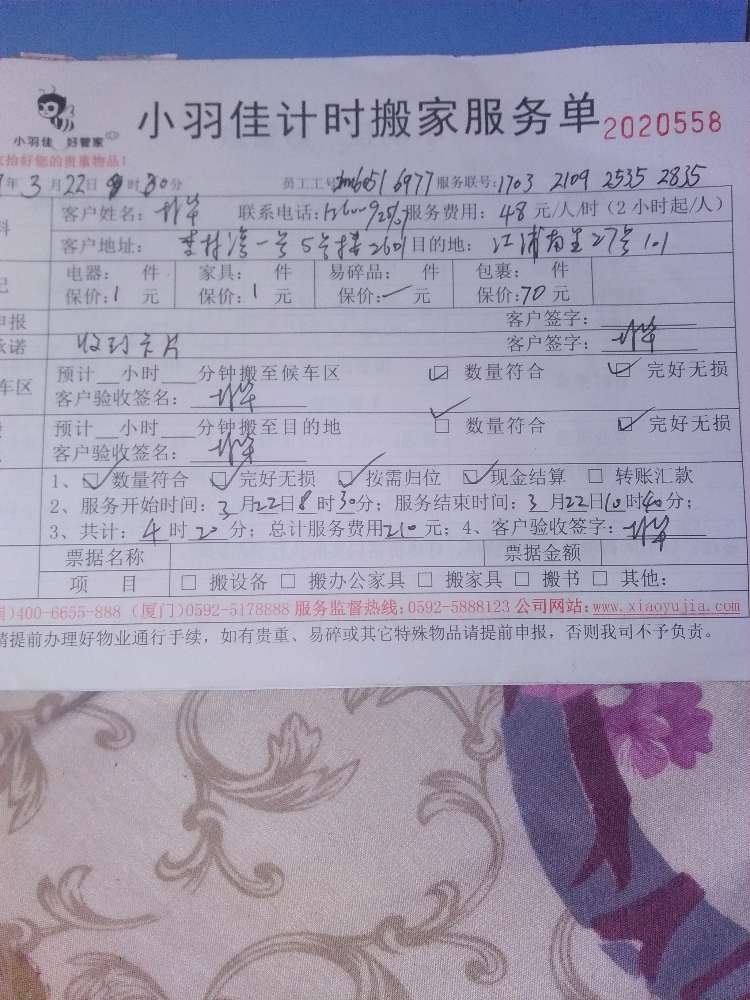 小羽佳计时搬家服务单 2020558
小羽佳 好管家
拍好您的贵重物品!
年3月22日 时30分 员工工号 6977 服务联号:1703 2109 2535 2835
客户姓名: 联系电话: 服务费用:48元/人/时(2小时起/人)
客户地址: 一号5号楼2601 目的地:江浦南里27号101
电器: 件 家具: 件 易碎品: 件 包裹: 件
保价:1元 保价:1元 保价:一元 保价:70元
申报 客户签字:
承诺 收到卡片 客户签字:
预计 小时 分钟搬至候车区 数量符合 完好无损
车区 客户验收签名:
预计 小时 分钟搬至目的地 数量符合 完好无损
客户验收签名:
1、数量符合 完好无损 按需归位 现金结算 转账汇款
2、服务开始时间:3月22日8时30分;服务结束时间:3月22日10时40分;
3、共计:4时20分;总计服务费用210元;4、客户验收签字:
票据名称 票据金额
项 目 搬设备 搬办公家具 搬家具 搬书 其他:
)400-6655-888 (厦门)0592-5178888 服务监督热线:0592-5888123 公司网站:www.xiaoyujia.com
请提前办理好物业通行手续,如有贵重、易碎或其它特殊物品请提前申报,否则我司不予负责。